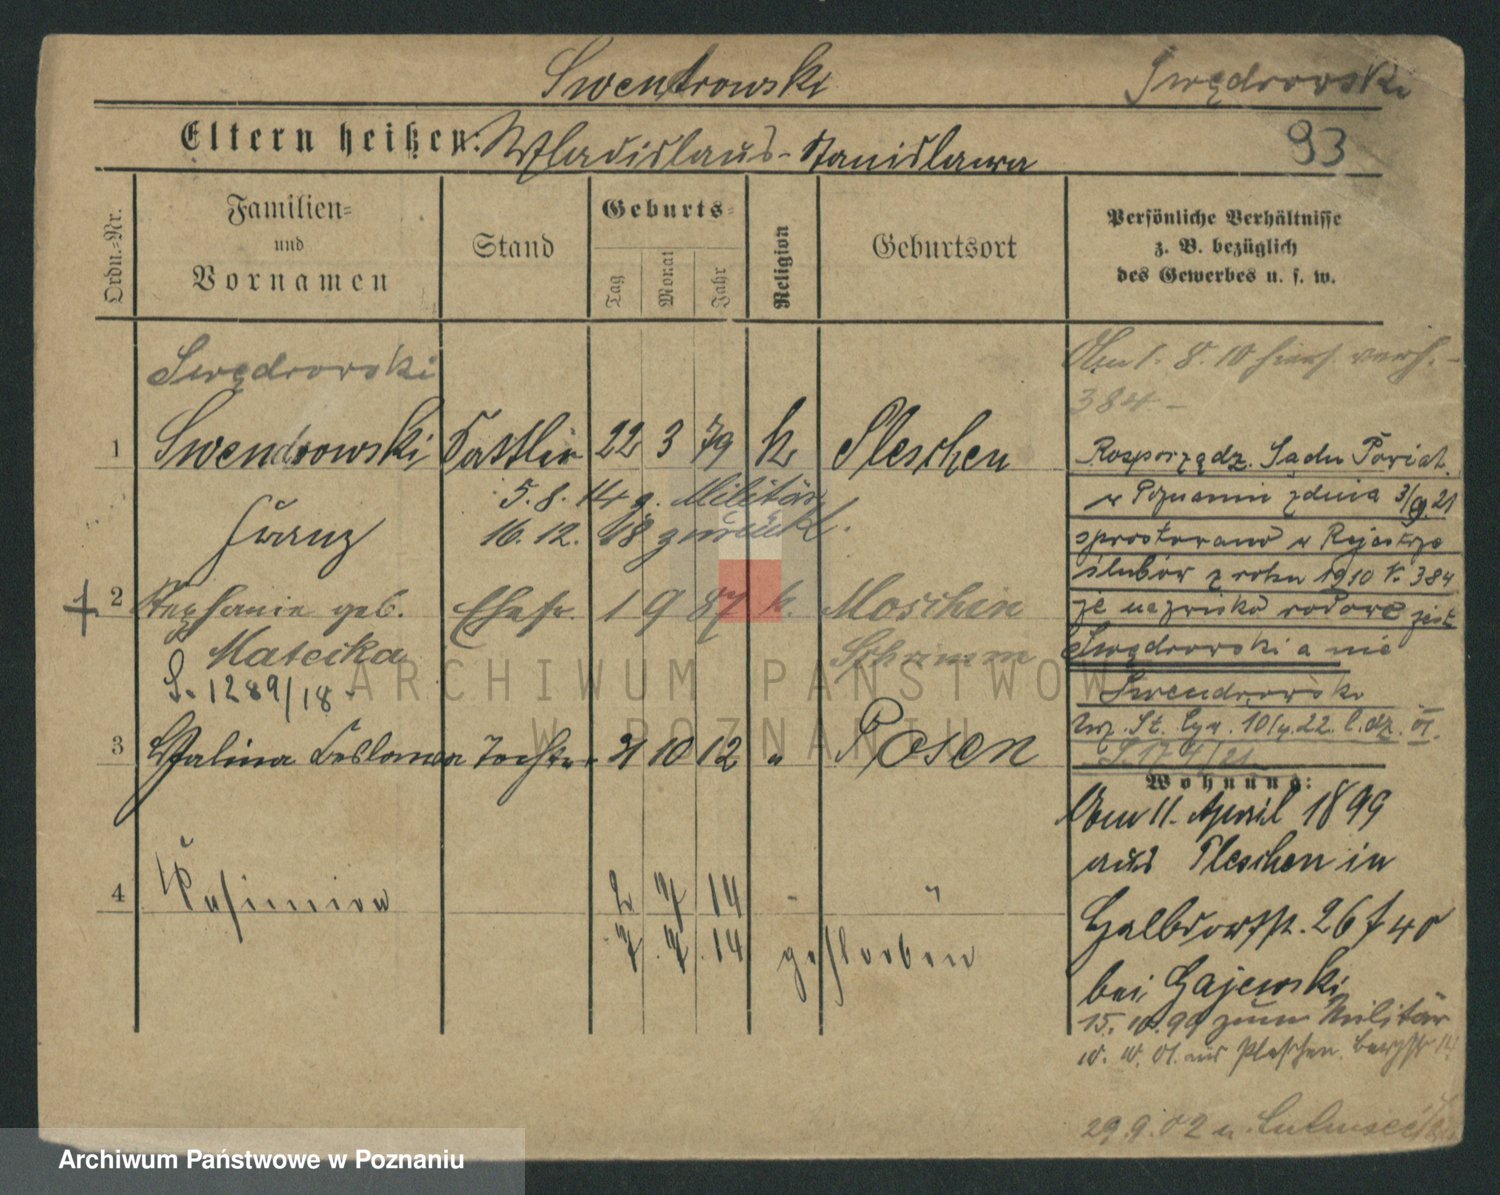 Swentrowski
Swędrowski
Eltern heißen: Wladislaus - Stanislawa
93
Ordn.=Nr.
Familien=
und
Vornamen
Stand
Geburts=
Tag
Monat
Jahr
Religion
Geburtsort
Persönliche Verhältnisse
z. B. bezüglich
des Gewerbes u. s. w.
Swędrowski
1 Swendrowski Sattler 22 3 79 k Pleschen
5.8.14 z. Militär
Franz 16.12.18 zurück.
2 Stephanie geb. Ehefr. 1 9 87 k. Moschin
Mateika Schrimm
S. 1289/18
3 Halina Tochter 21 10 12 " Posen
4 Kasimira 2 7 14 - "
7. 7. 14 gestorben
Am 1. 8. 10 hier verh.
384 -
Rozporządz. Sądu Powiat.
w Poznaniu z dnia 3/9. 21
sprostowano w Rejestrze
ślubów z roku 1910 N. 384
że nazwisko rodowe jest
Swędrowski a nie
Swendrowski
St. 10/4.22. l. dz. VI.
S. 174/21
Wohnung:
Am 11. April 1899
aus Pleschen in
Halbdorfstr. 26
bei Gajewski
15.10.99 zum Militär
10. 10. 01. aus Pleschen.
29.9.02 n.
ARCHIWUM PAŃSTWOW
W POZNANIU
Archiwum Państwowe w Poznaniu